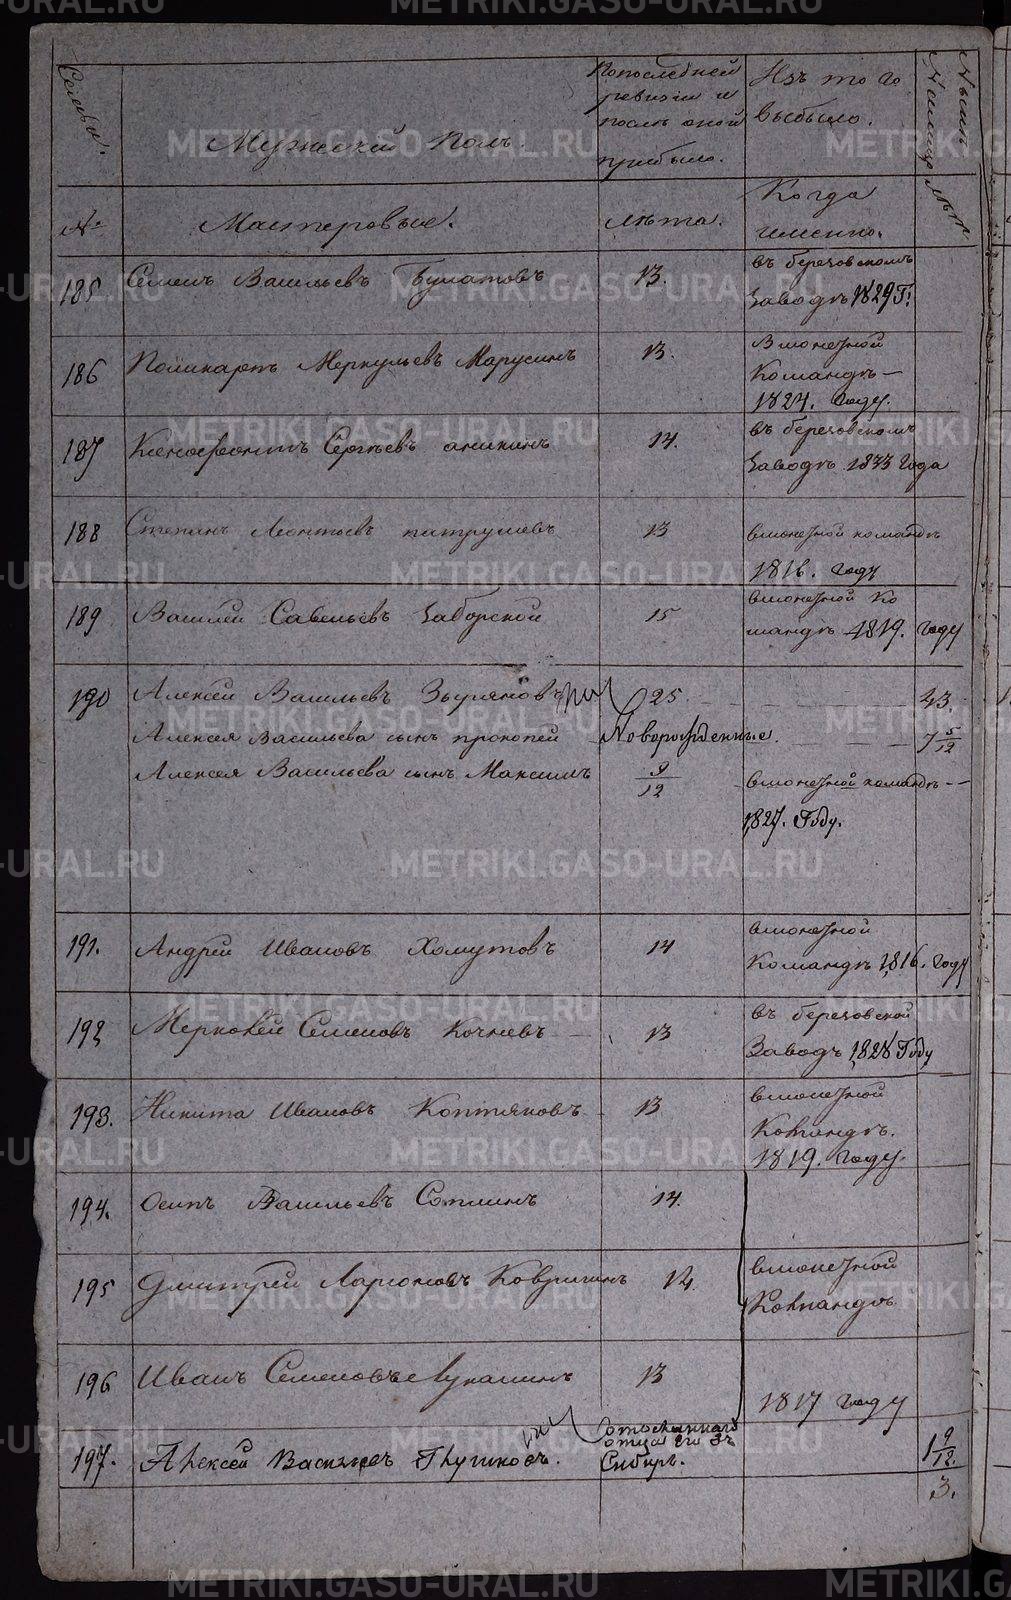 Семьи.
Мужеский Полъ.
По последней
ревизiи и
после оной
прибыло.
Изъ то го
выбыло.
Ныне
На лицо
№
Мастеровые.
лѣта.
Когда
имянно.
лѣта
185
Семенъ Васильевъ Булатовъ
13.
въ березовскомъ
заводѣ 1829 Г.
186
Поликарпъ Меркульевъ Марусинъ
13.
В монетной
Командѣ —
1824. году.
187
Ксенофонтъ Сергѣевъ аникинъ
14.
въ березовскомъ
заводѣ 1833 года
188
Степанъ Леонтьевъ патрушевъ
13
вмонетной командѣ
1816. году
189
Василей Савельевъ Заборской
15
вмонетной Ко
мандѣ 1819. году
190
Алексей Васильевъ Зыряновъ
25
43.
Алексея Васильева сынъ прокопей
Новорожденные.
7 5/12
Алексея Васильева сынъ Максимъ
9/12
вмонетной командѣ —
1827. Году.
191.
Андрей Ивановъ Хомутовъ
14
вмонетной
Командѣ 1816. году
192
Мерковей Семеновъ Кочневъ
13
въ березовской
Заводъ 1828 Году
193.
Никита Ивановъ Коптяковъ
13
вмонетной
Командѣ.
1819. году.
194.
Осипъ Васильевъ Сотнинъ
14.
195
Дмитрей Ларионовъ Ковригинъ
14.
вмонетной
Командѣ
196
Иванъ Семеновъ Лукашинъ
13
1817 году
197.
Алексей Васильевъ Глушковъ.
отосланнаго
отца его въ
Сибирь.
1 9/12.
3.
METRIKI.GASO-URAL.RU